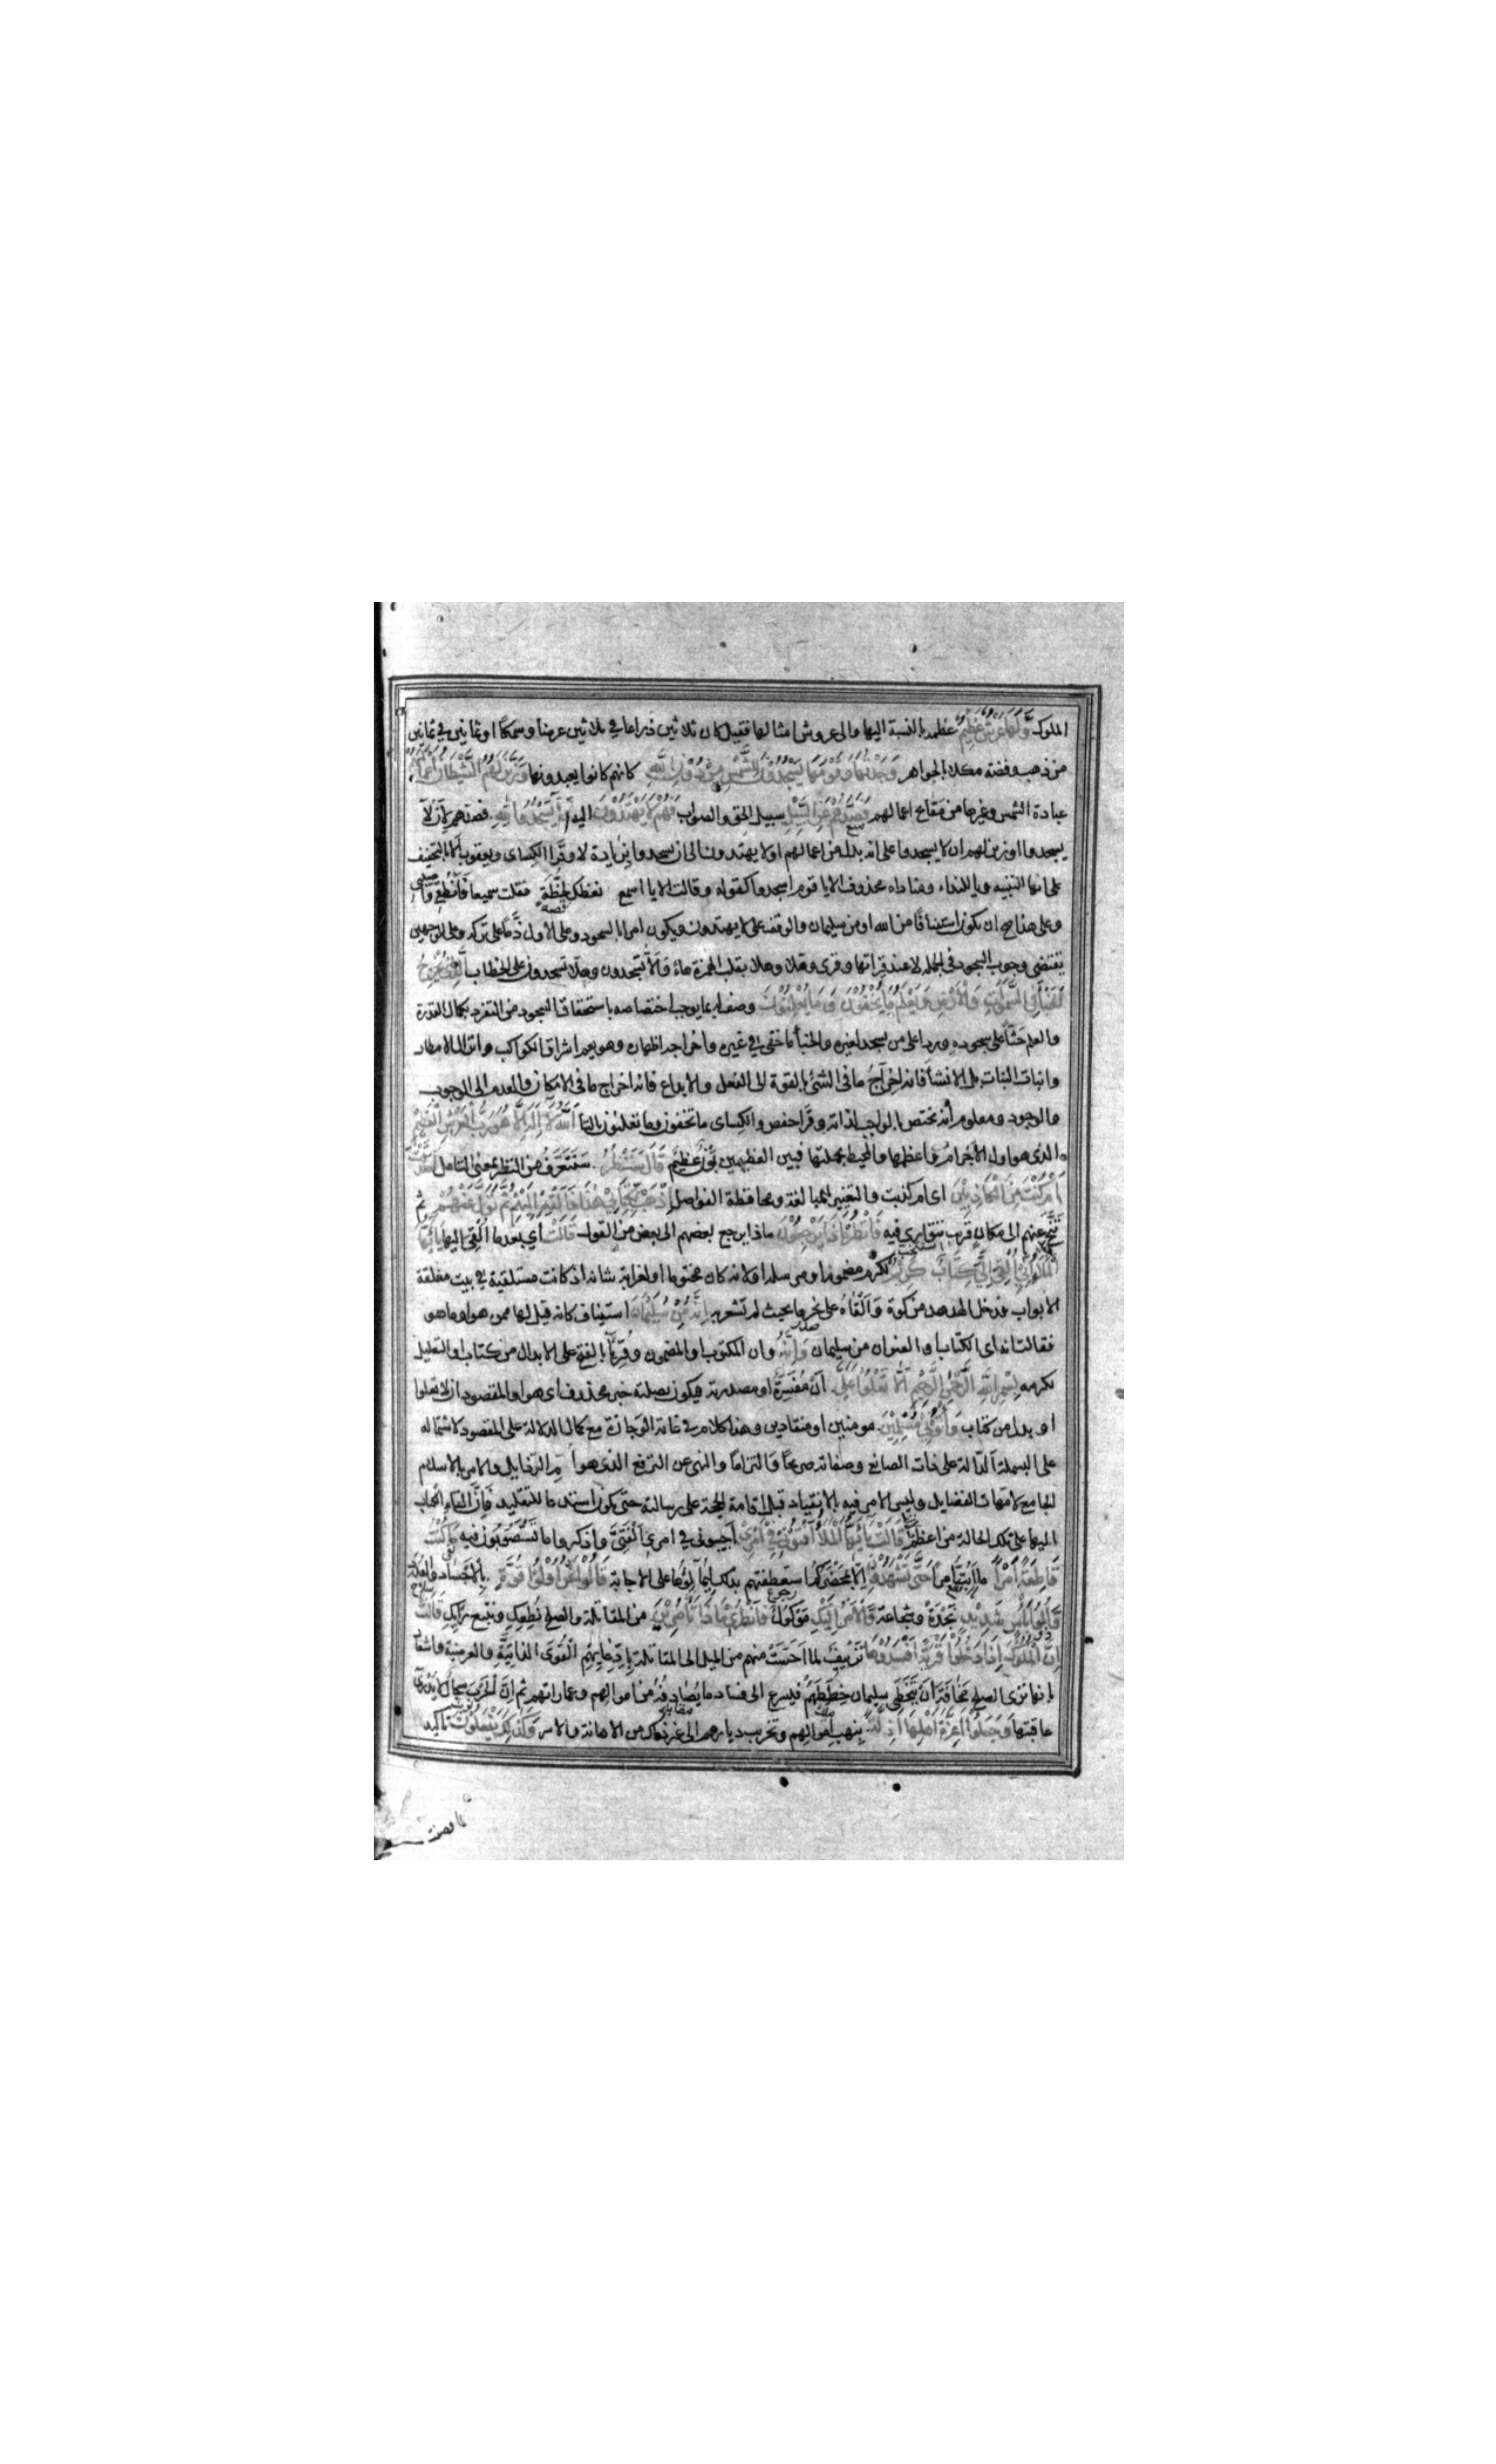 الملوك وَلَهَا عَرْشٌ عَظِيمٌ عظمه بالنسبة اليها والى عروش امثالها فقيل كان ثلاثين ذراعا في ثلاثين عرضا وسمكا او ثمانين في ثمانين
من ذهب وفضة مكلل بالجواهر وَجَدْتُهَا وَقَوْمَهَا يَسْجُدُونَ لِلشَّمْسِ مِنْ دُونِ اللَّهِ كانهم كانوا يعبدونها وَزَيَّنَ لَهُمُ الشَّيْطَانُ أَعْمَالَهُمْ
عبادة الشمس وغيرها من مقابح اعمالهم فَصَدَّهُمْ عَنِ السَّبِيلِ سبيل الحق والصواب فَهُمْ لَا يَهْتَدُونَ اليه أَلَّا يَسْجُدُوا لِلَّهِ فصدهم لان لا
يسجدوا او زين لهم ان لا يسجدوا على انه بدل من اعمالهم او لا يهتدون الى ان يسجدوا بزيادة لا وقرا الكسائى ويعقوب ألا بالتخفيف
على انها للتنبيه ويا للنداء ومناداه محذوف الا يا قوم اسجدوا كقوله وقالت الا يا اسمع نعظك بخطة فقلت سميعا فانطقى واصيبى
وعلى هذا صح ان يكون استينافا من الله او من سليمان والوقف على لا يهتدون ويكون امرا بالسجود وعلى الاول ذما على تركه وعلى الوجهين
يقتضى وجوب السجود فى الجملة لا عند قراتها وقرى وهلا وهلا بقلب الهمزة هاء وَأَلَا تسجدون وهلا تسجدون على الخطاب الَّذِي يُخْرِجُ
الْخَبْأَ فِي السَّمَوَاتِ وَالْأَرْضِ وَيَعْلَمُ مَا يُخْفُونَ وَمَا يُعْلِنُونَ وصف له بما يوجب اختصاصه باستحقاق السجود من التفرد بكمال القدرة
والعلم حثا على سجوده وردا على من يسجد لغيره والخبأ ما خفى في غيره واخراجه اظهاره وهو يعم اشراق الكواكب وانزال الامطار
وانبات النبات بل الانشأ فانه اخراج ما فى الشئ بالقوة الى الفعل والابداع فانه اخراج ما فى الامكان والعدم الى الوجوب
والوجود ومعلوم انه يختص بالواجب لذاته وقرا حفص والكسائى ما تخفون وما تعلنون بالتا اللَّهُ لَا إِلَهَ إِلَّا هُوَ رَبُّ الْعَرْشِ الْعَظِيمِ
الذى هو اول الاجرام واعظمها والمحيط بجملتها فبين العظيمين بون عظيم قَالَ سَنَنْظُرُ سنتعرف من النظر بمعنى التامل أَصَدَقْتَ
أَمْ كُنْتَ مِنَ الْكَاذِبِينَ اى ام كذبت والتغيير للمبالغة ومحافظة الفواصل اذْهَبْ بِكِتَابِي هَذَا فَأَلْقِهْ إِلَيْهِمْ ثُمَّ تَوَلَّ عَنْهُمْ ثم
تنح عنهم الى مكان قريب تتوارى فيه فَانْظُرْ مَاذَا يَرْجِعُونَ ماذا يرجع بعضهم الى بعض من القول قَالَتْ اي بعد ما القى اليها يَا أَيُّهَا
الْمَلَأُ إِنِّي أُلْقِيَ إِلَيَّ كِتَابٌ كَرِيمٌ لكرم مضمونه او مرسله او لانه كان مختوما او لغرابة شانه اذ كانت مستلقية في بيت مغلقة
الابواب فدخل الهدهد من كوة والقاه على نحرها بحيث لم تشعر به إِنَّهُ مِنْ سُلَيْمَانَ استيناف كانه قيل لها ممن هو او ما هو
فقالت انه اى الكتاب او العنوان من سليمان وَإِنَّهُ وان المكتوب او المضمون وقريا بالفتح على الابدال من كتاب او التعليل
لكرمه بِسْمِ اللَّهِ الرَّحْمَنِ الرَّحِيمِ أَلَّا تَعْلُوا عَلَيَّ ان مفسرة او مصدرية فيكون بصلته خبر محذوف اى هو او المقصود ان لا تعلوا
او بدل من كتاب وَأْتُونِي مُسْلِمِينَ مومنين او منقادين وهذا كلام في غاية الوجازة مع كمال الدلالة على المقصود لاشتماله
على البسملة الدالة على ذات الصانع وصفاته صريحا والتزاما والنهى عن الترفع الذى هو ام الرذايل والامر بالاسلام
الجامع لامهات الفضايل وليس الامر فيه بالانقياد قبل اقامة الحجة على رسالته حتى يكون استدعا للتقليد فان القاء الكتاب
اليها على تلك الحالة من اعظم قَالَتْ يَا أَيُّهَا الْمَلَأُ أَفْتُونِي فِي أَمْرِي اجيبونى في امرى الفتى واذكروا ما تستصوبون فيه مَا كُنْتُ
قَاطِعَةً أَمْرًا ما ابت امرا حَتَّى تَشْهَدُونِ الا بمحضركم استعطفتهم بذلك ليمالؤها على الاجابة قَالُوا نَحْنُ أُولُوا قُوَّةٍ بالاجساد والعدد
وَأُولُوا بَأْسٍ شَدِيدٍ نجدة وشجاعة وَالْأَمْرُ إِلَيْكِ موكول فَانْظُرِي مَاذَا تَأْمُرِينَ من المقاتلة والصلح نطعك ونتبع رايك قَالَتْ
إِنَّ الْمُلُوكَ إِذَا دَخَلُوا قَرْيَةً أَفْسَدُوهَا تزييف لما احست منهم من الميل الى المقاتلة بادعايهم القوى الذاتية والعرضية واشعار
بانها ترى الصلح مخافة ان يتخطى سليمان خططهم فيسرع الى فساد ما يصادفه من اموالهم وعماراتهم ثم ان الحرب سجال لا يدرى
عاقبتها وَجَعَلُوا أَعِزَّةَ أَهْلِهَا أَذِلَّةً بنهب اموالهم وتخريب ديارهم الى غير ذلك من الاهانة والاسر وَكَذَلِكَ يَفْعَلُونَ تاكيد